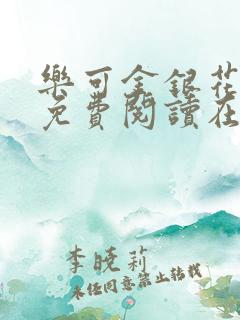 樂可金銀花
免費閱讀在
李曉莉
未經同意禁止轉載